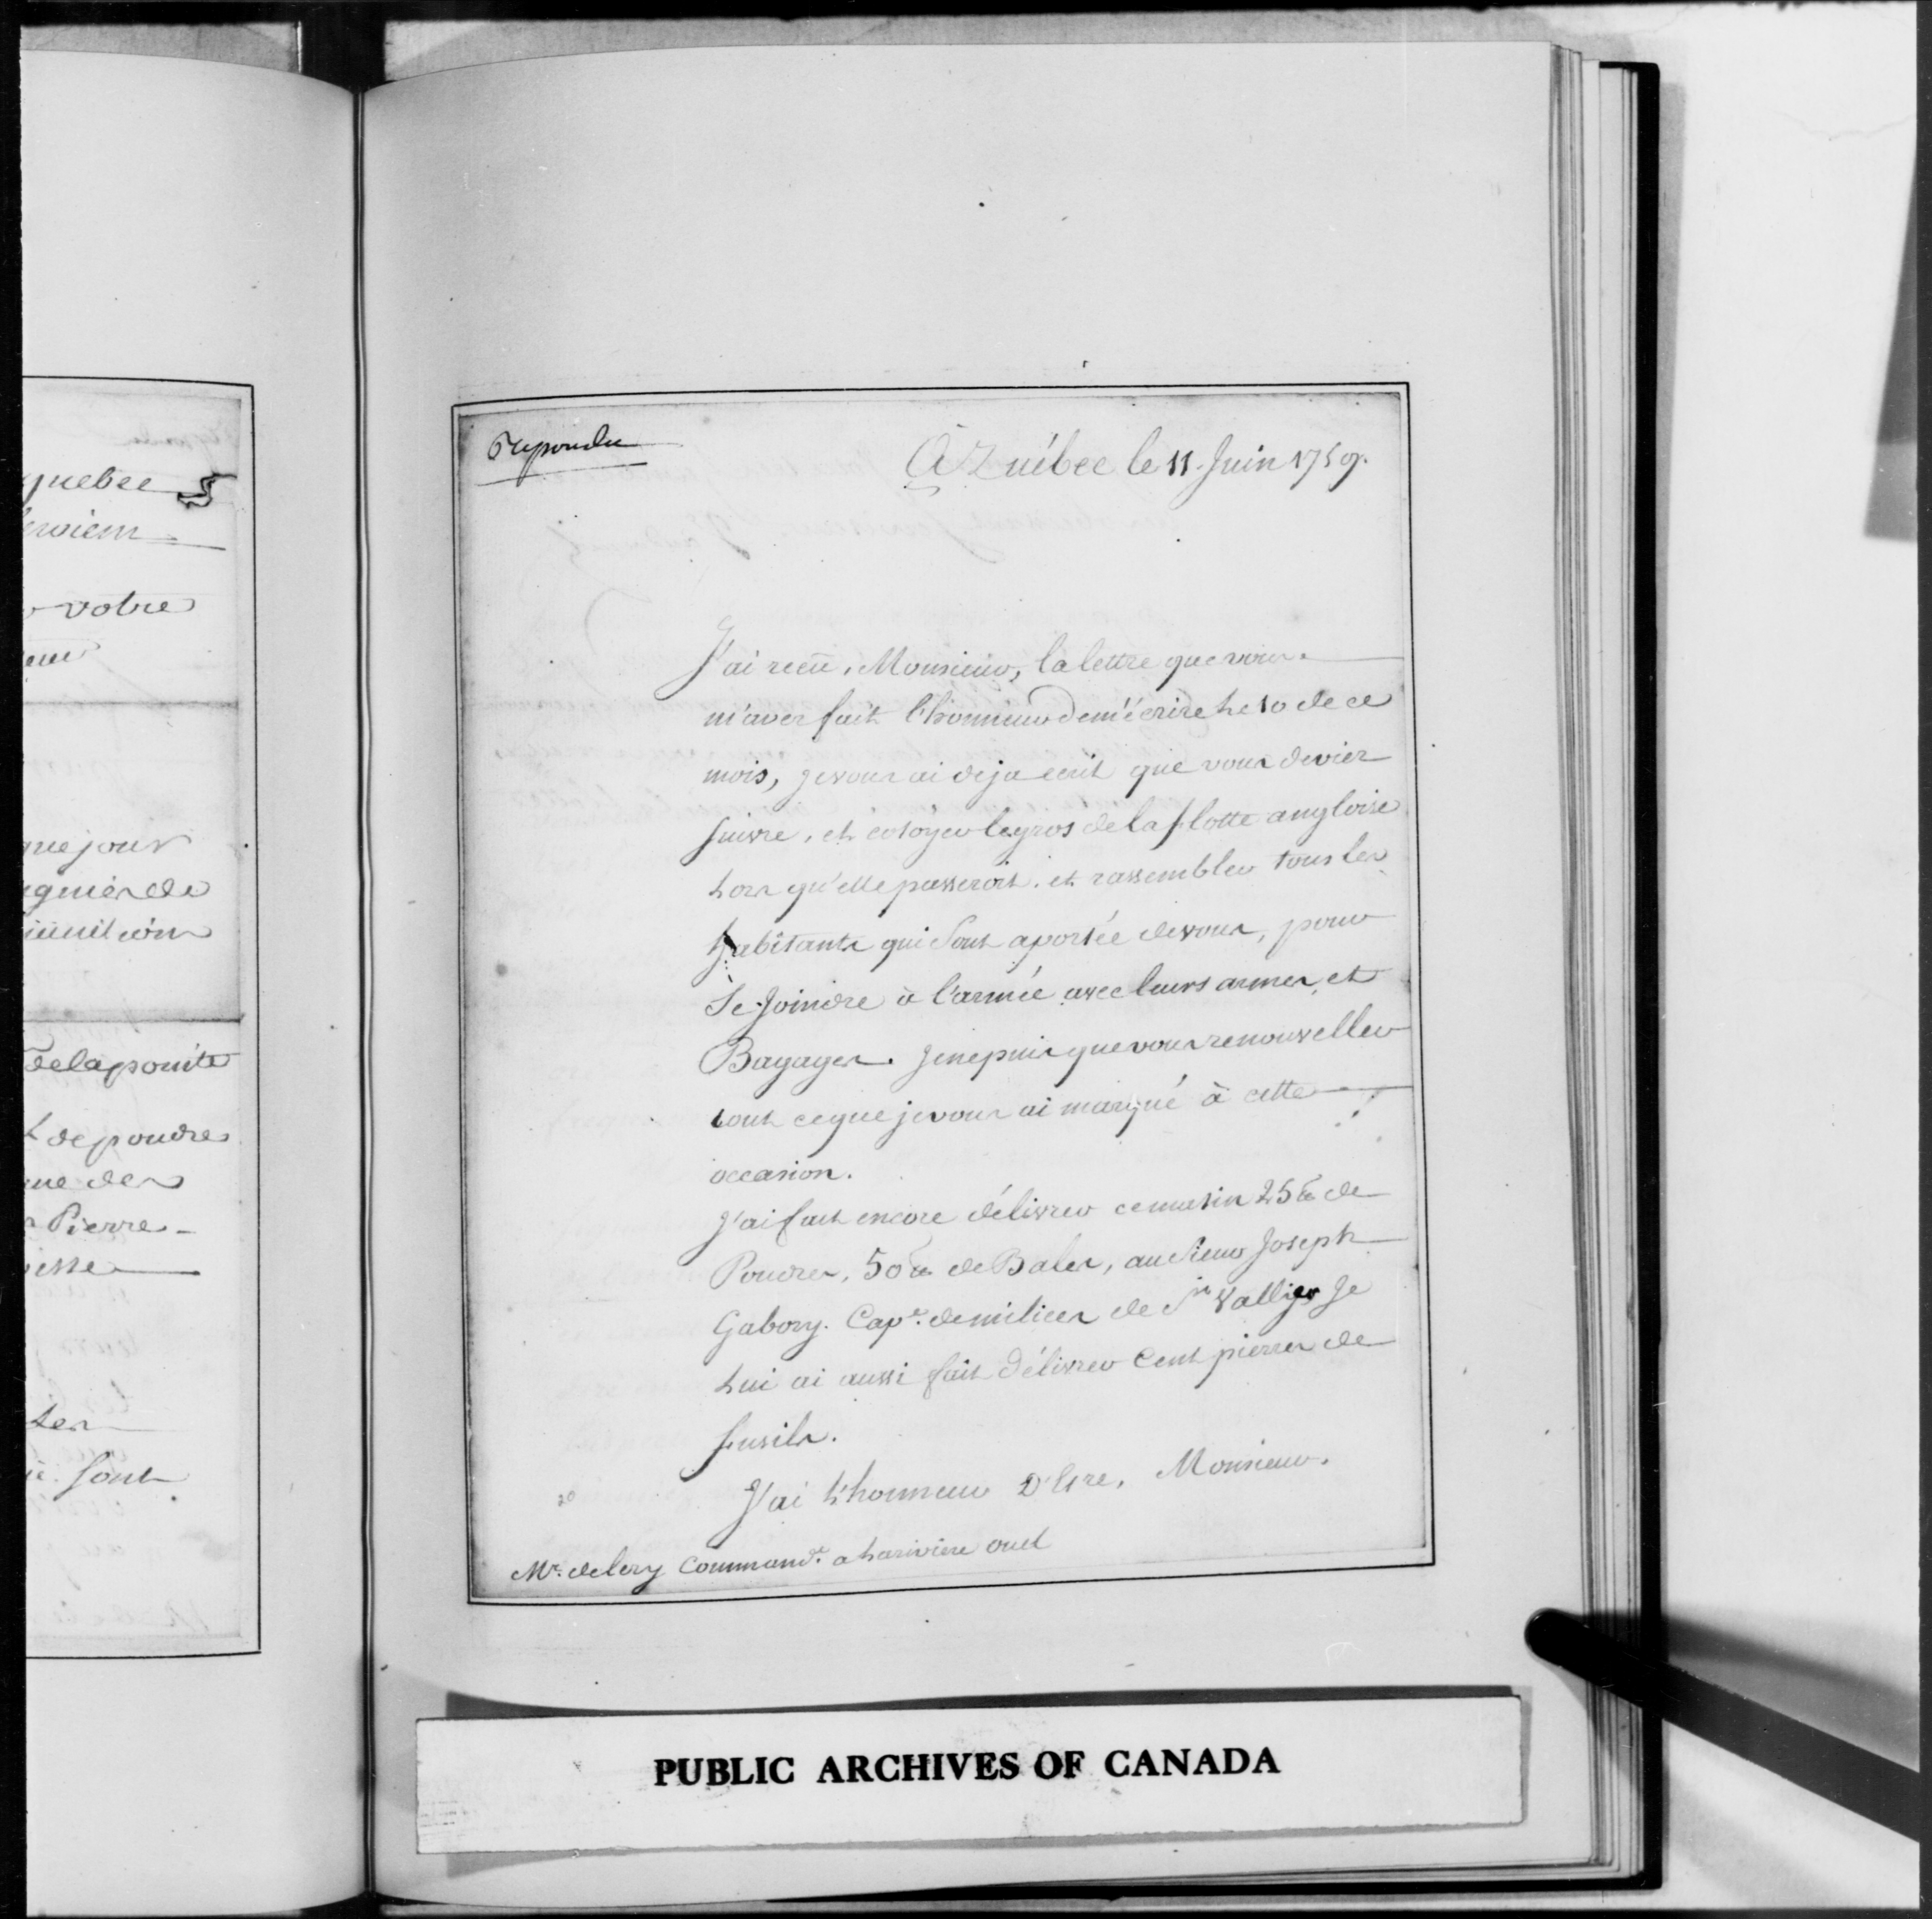 quebec
votre
que jour
de la pointe
de poudres
que des
Pierre
les
sont
Repondu
À Québec le 11. Juin 1759.
J'ai recü, Monsieur, la lettre que vous
m'avez fait l'honneur de m'écrire Le 10 de ce
mois, je vous ai deja écrit que vous deviez
suivre, et cotoyer le gros de la flotte angloise
Lors qu'elle passeroit. et rassembler tous les
habitants qui Sont a portée de vous, pour
Se Joindre à l'armée avec leurs armes, et
Bagages. Je ne puis que vous renouveller
tout ce que je vous ai marqué à cette
occasion.
J'ai fait encore délivrer ce matin 25 ₶ de
Poudre, 50 ₶ de Bales, au Sieur Joseph
Gabory. Cape. de milices de St Vallier Je
Lui ai aussi fait Délivrer Cent pierres de
fusils.
J'ai L'honneur D'Etre, Monsieur.
Mr. de lery Commandt. a La riviere ouel
PUBLIC ARCHIVES OF CANADA